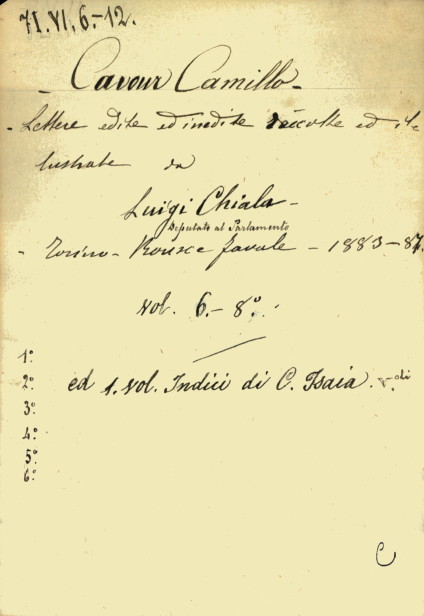 71.VI.6.-12.
- Cavour Camillo -
- Lettere edite ed inedite raccolte ed il-
lustrate da
Luigi Chiala -
Deputato al Parlamento
- Torino - Roux e Favale - 1883-87.
vol. 6. - 8°.
1°.
2°. ed 1. vol. Indici di C. Isaia. v. di
3°.
4°.
5°.
6°.
C